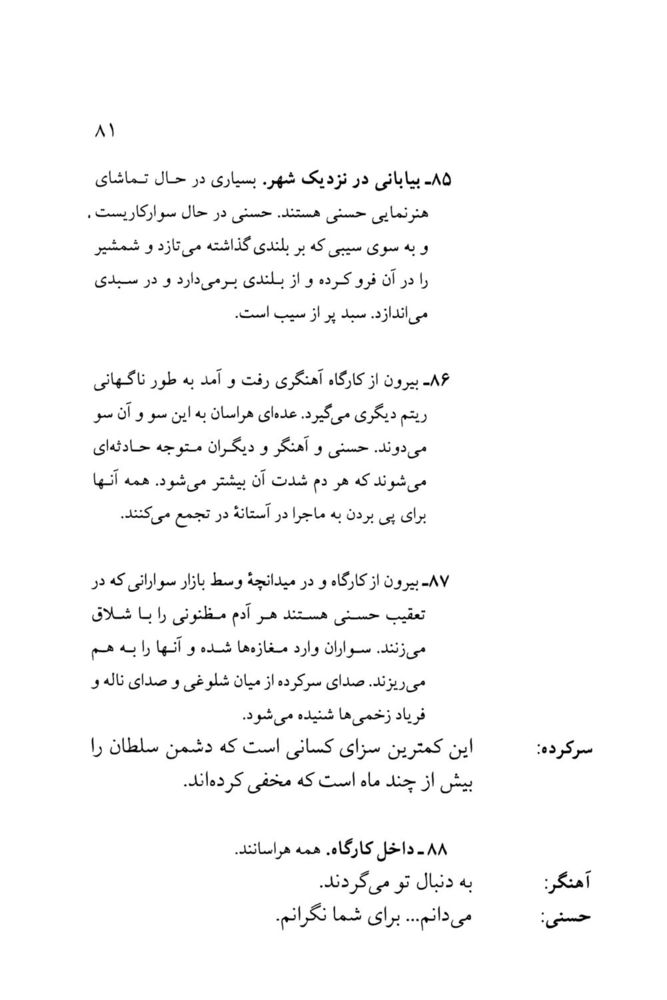 ۸۱
۸۵ـ بیابانی در نزدیک شهر. بسیاری در حال تماشای
هنرنمایی حسنی هستند. حسنی در حال سوارکاریست .
و به سوی سیبی که بر بلندی گذاشته می‌تازد و شمشیر
را در آن فرو کرده و از بلندی برمی‌دارد و در سبدی
می‌اندازد. سبد پر از سیب است.
۸۶ـ بیرون از کارگاه آهنگری رفت و آمد به طور ناگهانی
ریتم دیگری می‌گیرد. عده‌ای هراسان به این سو و آن سو
می‌دوند. حسنی و آهنگر و دیگران متوجه حادثه‌ای
می‌شوند که هر دم شدت آن بیشتر می‌شود. همه آنها
برای پی بردن به ماجرا در آستانهٔ در تجمع می‌کنند.
۸۷ـ بیرون از کارگاه و در میدانچهٔ وسط بازار سوارانی که در
تعقیب حسنی هستند هر آدم مظنونی را با شلاق
می‌زنند. سواران وارد مغازه‌ها شده و آنها را به هم
می‌ریزند. صدای سرکرده از میان شلوغی و صدای ناله و
فریاد زخمی‌ها شنیده می‌شود.
سرکرده: این کمترین سزای کسانی است که دشمن سلطان را
بیش از چند ماه است که مخفی کرده‌اند.
۸۸ ـ داخل کارگاه. همه هراسانند.
آهنگر: به دنبال تو می‌گردند.
حسنی: می‌دانم... برای شما نگرانم.